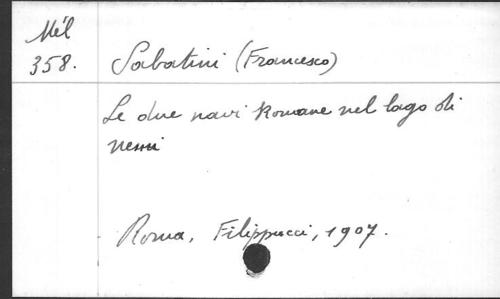 Mél
358.
Sabatini (Francesco)
Le due navi Romane nel lago di
Nemi
Roma, Filippucci, 1907.